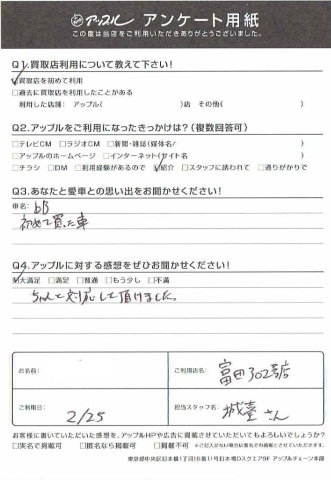 アップル アンケート用紙
この度は当店をご利用いただきありがとうございました。
Q1.買取店利用について教えて下さい!
☑買取店を初めて利用
□過去に買取店を利用したことがある
利用した店舗: アップル( )店 その他( )
Q2.アップルをご利用になったきっかけは?(複数回答可)
□テレビCM □ラジオCM □新聞・雑誌(媒体名/ )
□アップルのホームページ □インターネット(サイト名 )
□チラシ □DM □利用経験があるので ☑紹介 □スタッフに誘われて □通りがかりで
Q3.あなたと愛車との思い出をお聞かせください!
車名: bB
初めて買った車
Q4.アップルに対する感想をぜひお聞かせください!
☑大満足 □満足 □普通 □もう少し □不満
ちゃんと対応して頂けました。
お名前:
ご利用店名: 富田302号店
ご利用日: 2/25
担当スタッフ名: 城臺さん
お客様に書いていただいた感想を、アップルHPや広告に掲載させていただいてもよろしいでしょうか?
□実名で掲載可 □匿名なら掲載可 □掲載不可
東京都中央区日本橋1丁目16番11号日本橋Dスクエア9F アップルチェーン本部